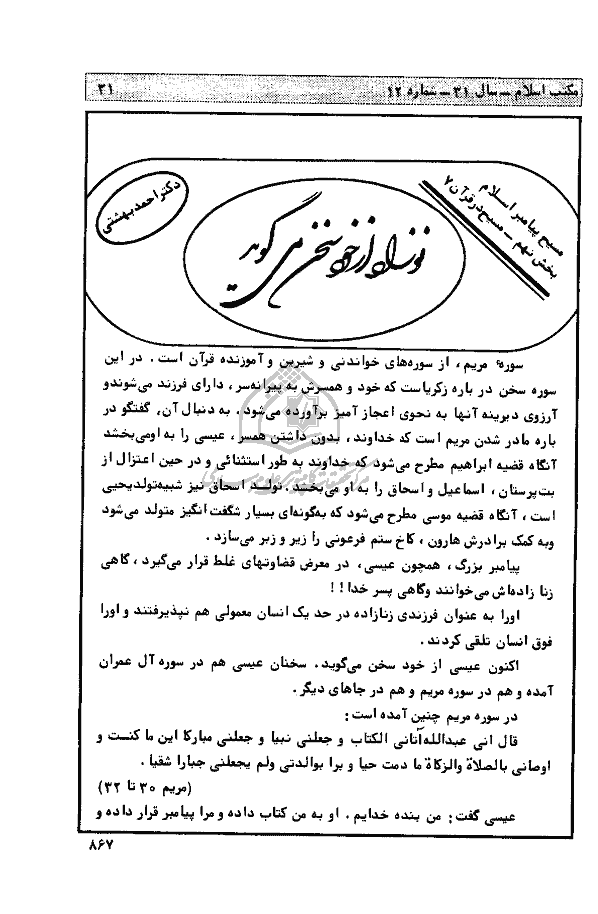 مکتب اسلام ــ سال ۳۱ ــ شماره ۱۲
۳۱
مسیح پیامبر اسلام
بخش نهم ــ مسیح در قرآن ۷
نوزاد از خود سخن می گوید
دکتر احمد بهشتی
سورهٔ مریم، از سوره‌های خواندنی و شیرین و آموزنده قرآن است . در این
سوره سخن در باره زکریاست که خود و همسرش به پیرانه‌سر، دارای فرزند می‌شوندو
آرزوی دیرینه آنها به نحوی اعجاز آمیز برآورده می‌شود . به دنبال آن، گفتگو در
باره مادر شدن مریم است که خداوند، بدون داشتن همسر، عیسی را به اومی‌بخشد
آنگاه قضیه ابراهیم مطرح می‌شود که خداوند به طور استثنائی و در حین اعتزال از
بت‌پرستان، اسماعیل و اسحاق را به او می‌بخشد. تولـد اسحاق نیز شبیه‌تولدیحیی
است، آنگاه قضیه موسی مطرح می‌شود که به‌گونه‌ای بسیار شگفت انگیز متولد می‌شود
وبه کمک برادرش هارون، کاخ ستم فرعونی را زیر و زبر می‌سازد .
پیامبر بزرگ، همچون عیسی، در معرض قضاوتهای غلط قرار می‌گیرد، گاهی
زنا زاده‌اش می‌خوانند وگاهی پسر خدا ! !
اورا به عنوان فرزندی زنازاده در حد یک انسان معمولی هم نپذیرفتند و اورا
فوق انسان تلقی کردند .
اکنون عیسی از خود سخن می‌گوید . سخنان عیسی هم در سوره آل عمران
آمده و هم در سوره مریم و هم در جاهای دیگر .
در سوره مریم چنین آمده است :
قال انی عبداللـه‌آتانی الکتاب و جعلنی نبیا و جعلنی مبارکا این ما کنـت و
اوصانی بالصلاة والزکاة ما دمت حیا و برا بوالدتی ولم یجعلنی جبارا شقیا .
(مریم ۳۰ تا ۳۲)
عیسی گفت : من بنده خدایم . او به من کتاب داده و مرا پیامبر قرار داده و
۸۶۷